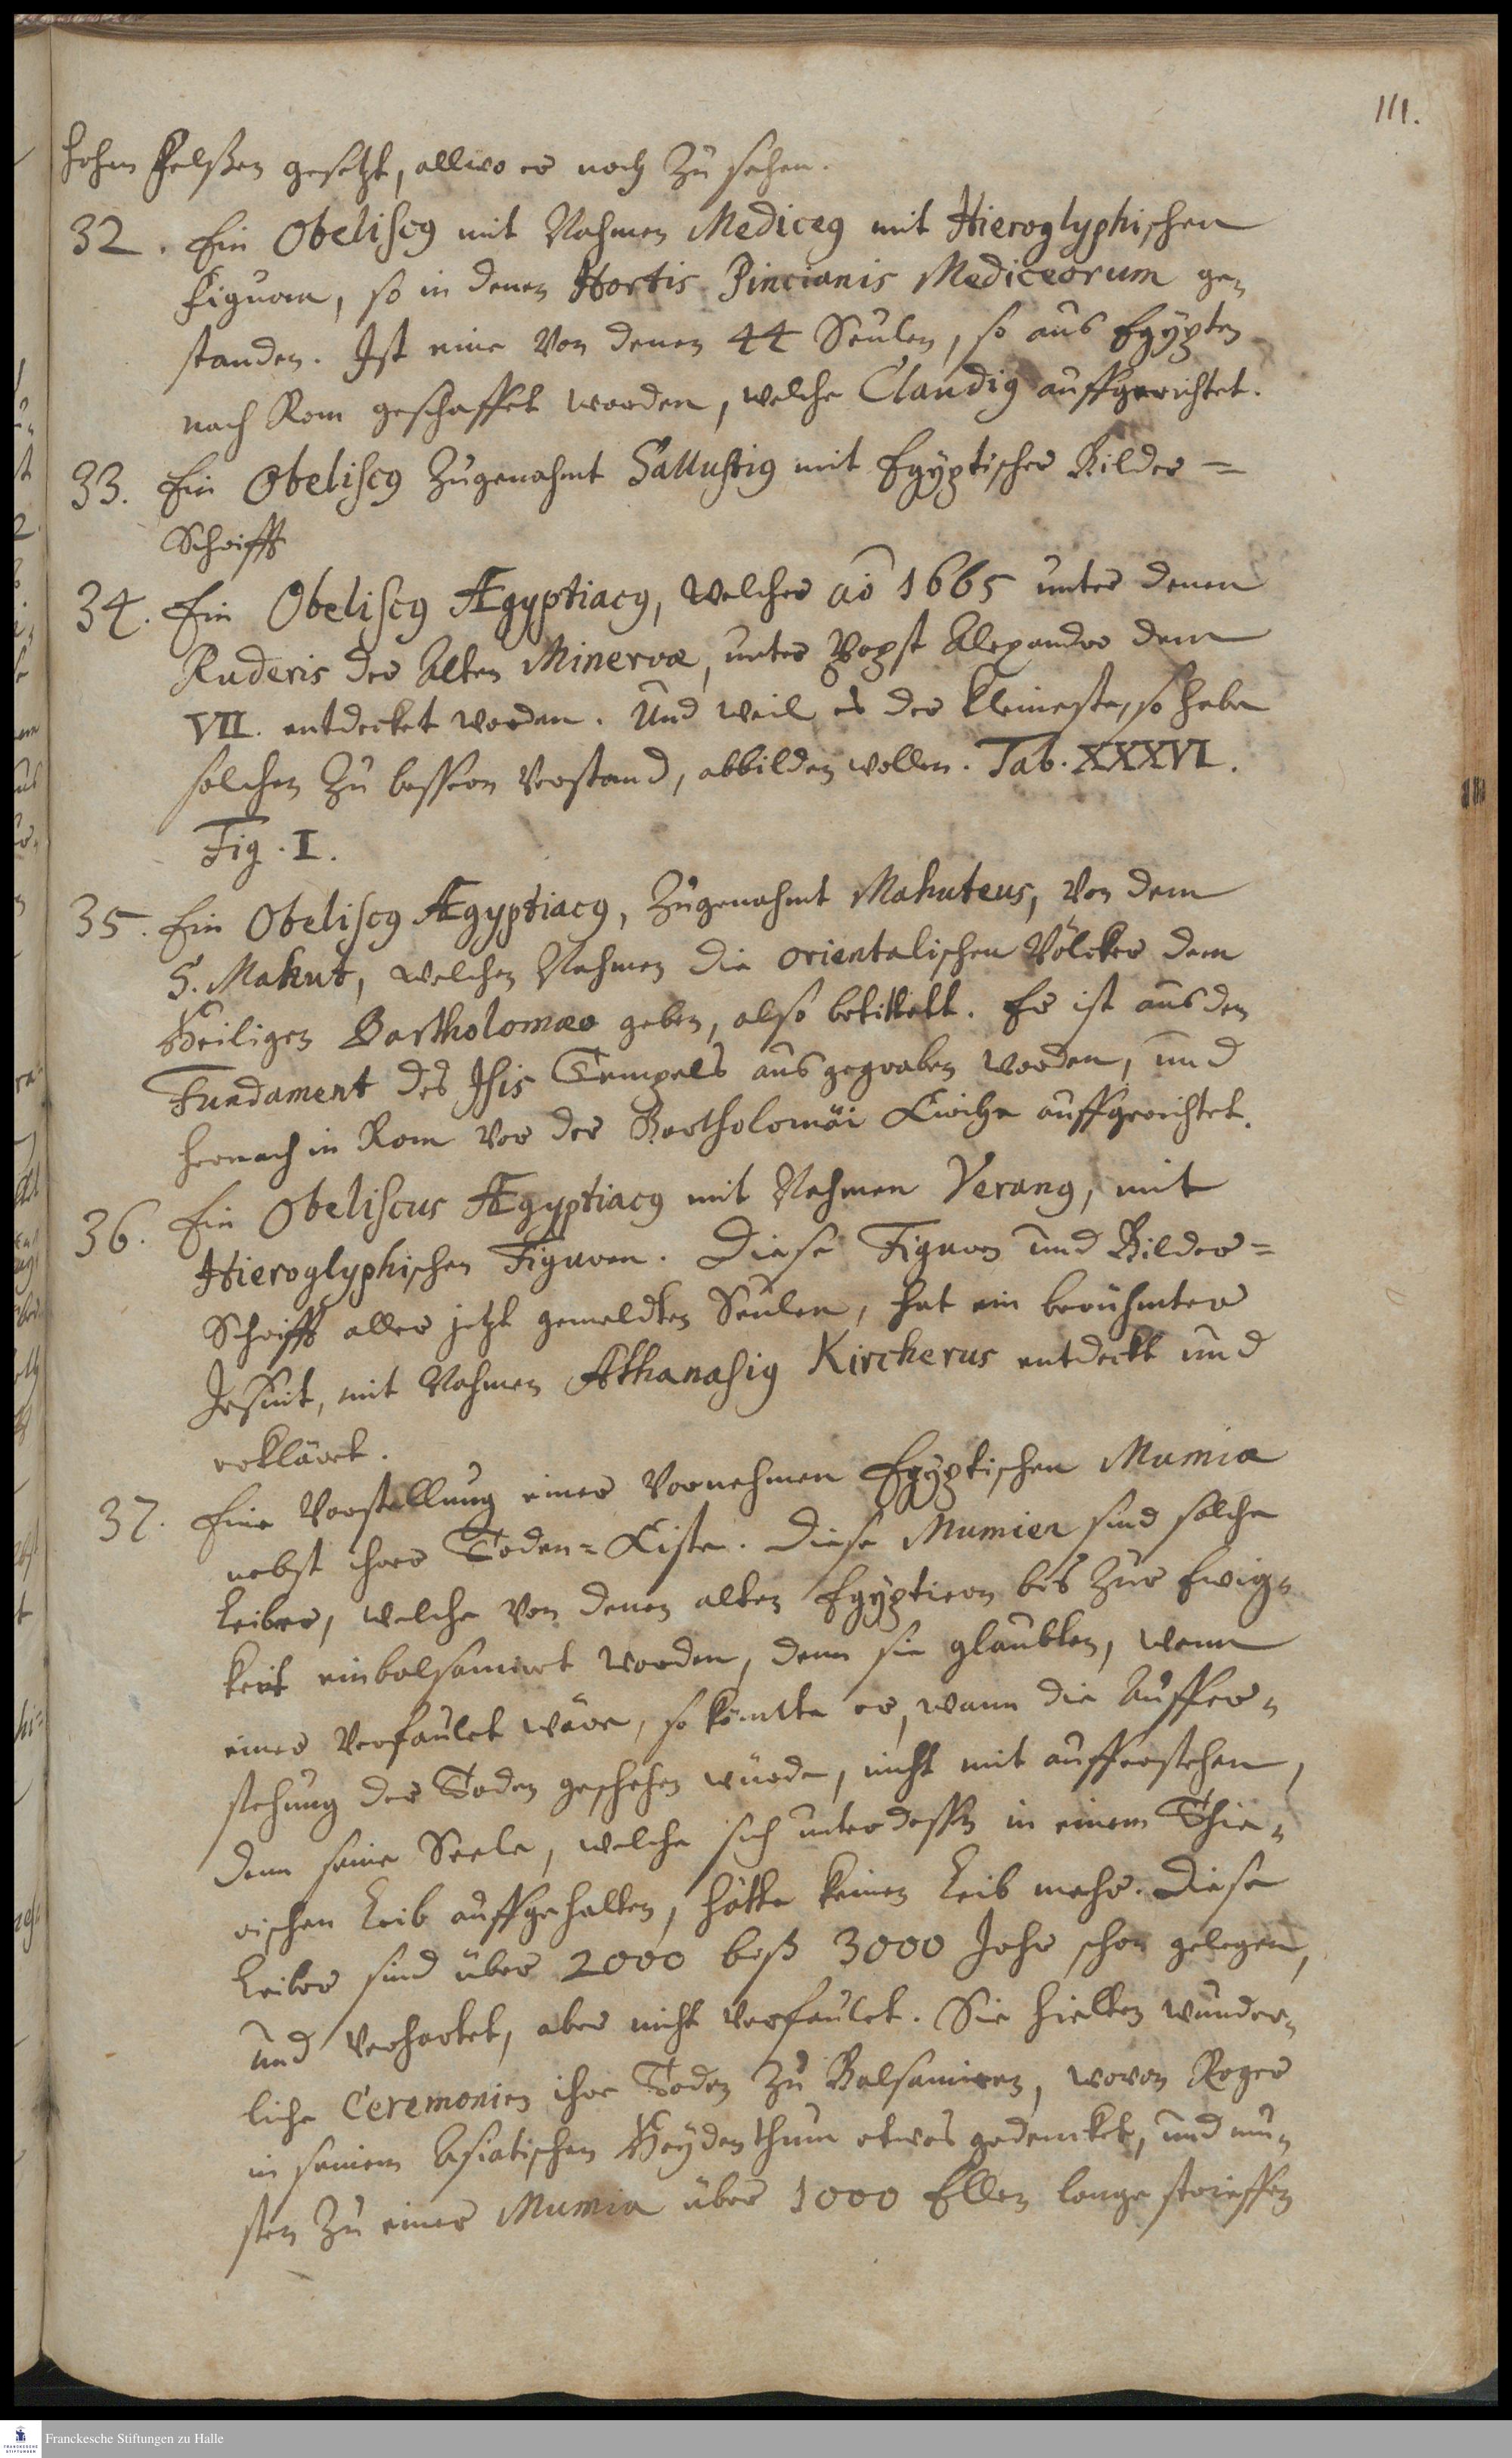 111.
hohen Felßen gesetzt, allwo er noch zu sehen.
32. Ein Obeliscꝰ mit Nahmen Mediceꝰ mit Hieroglyphischen
Figuren, so in denen Hortis Pincianis Mediceorum ge-
standen. Ist eine von denen 44 Seulen, so aus Egypten
nach Rom geschaffet worden, welche Claudiꝰ auffgerichtet.
33. Ein Obeliscꝰ zugenahmt Sallustiꝰ mit Egyptischer Bilder=
Schrifft
34. Ein Obeliscꝰ Ægyptiacꝰ, welcher aō 1665 unter denen
Ruderis der Alten Minervæ, unter Papst Alexander dem
VII. entdecket worden. Und weil es der kleineste, so habe
solchen zu bessern Verstand, abbilden wollen. Tab. XXXVI.
Fig. I.
35. Ein Obeliscꝰ Ægyptiacꝰ, zugenahmt Mahuteus, von dem
S. Mahut, welchen Nahmen die orientalischen Völcker dem
Heiligen Bartholomæo geben, also betittelt. Er ist aus den
Fundament des Isis Tempels ausgegraben worden, und
hernach in Rom vor der Bartholomäi Kirche auffgerichtet.
36. Ein Obeliscus Ægyptiacꝰ mit Nahmen Veranꝰ, mit
Hieroglyphischen Figuren. Diese Figuren und Bilder=
Schrifft aller jetzt gemeldten Seulen, hat ein berühmter
Jesuit, mit Nahmen Athanasiꝰ Kircherus entdeckt und
erklärt.
37. Eine Vorstellung einer Vornehmen Egyptischen Mumia
nebst ihrer Toden=Kiste. Diese Mumien sind solche
Leiber, welche von denen alten Egyptiern bis zur Ewig-
keit einbalsamirt worden, denn sie glaubten, wenn
einer verfaulet wäre, so könnte er, wann die Auffer-
stehung der Toden geschehen würde, nicht mit aufferstehen,
denn seine Seele, welche sich unterdessen in einem Thie-
rischen Leib auffgehalten, hätte keinen Leib mehr. Diese
Leiber sind über 2000 biß 3000 Jahr schon gelegen,
und verhartet, aber nicht verfaulet. Sie hielten wunder-
liche Ceremonien ihre Toden zu Balsamiren, wovon Roger
in seinem Asiatischen Heydenthum etwas gedencket, und mu-
sten zu einer Mumia über 1000 Ellen lange streiffen
Franckesche Stiftungen zu Halle